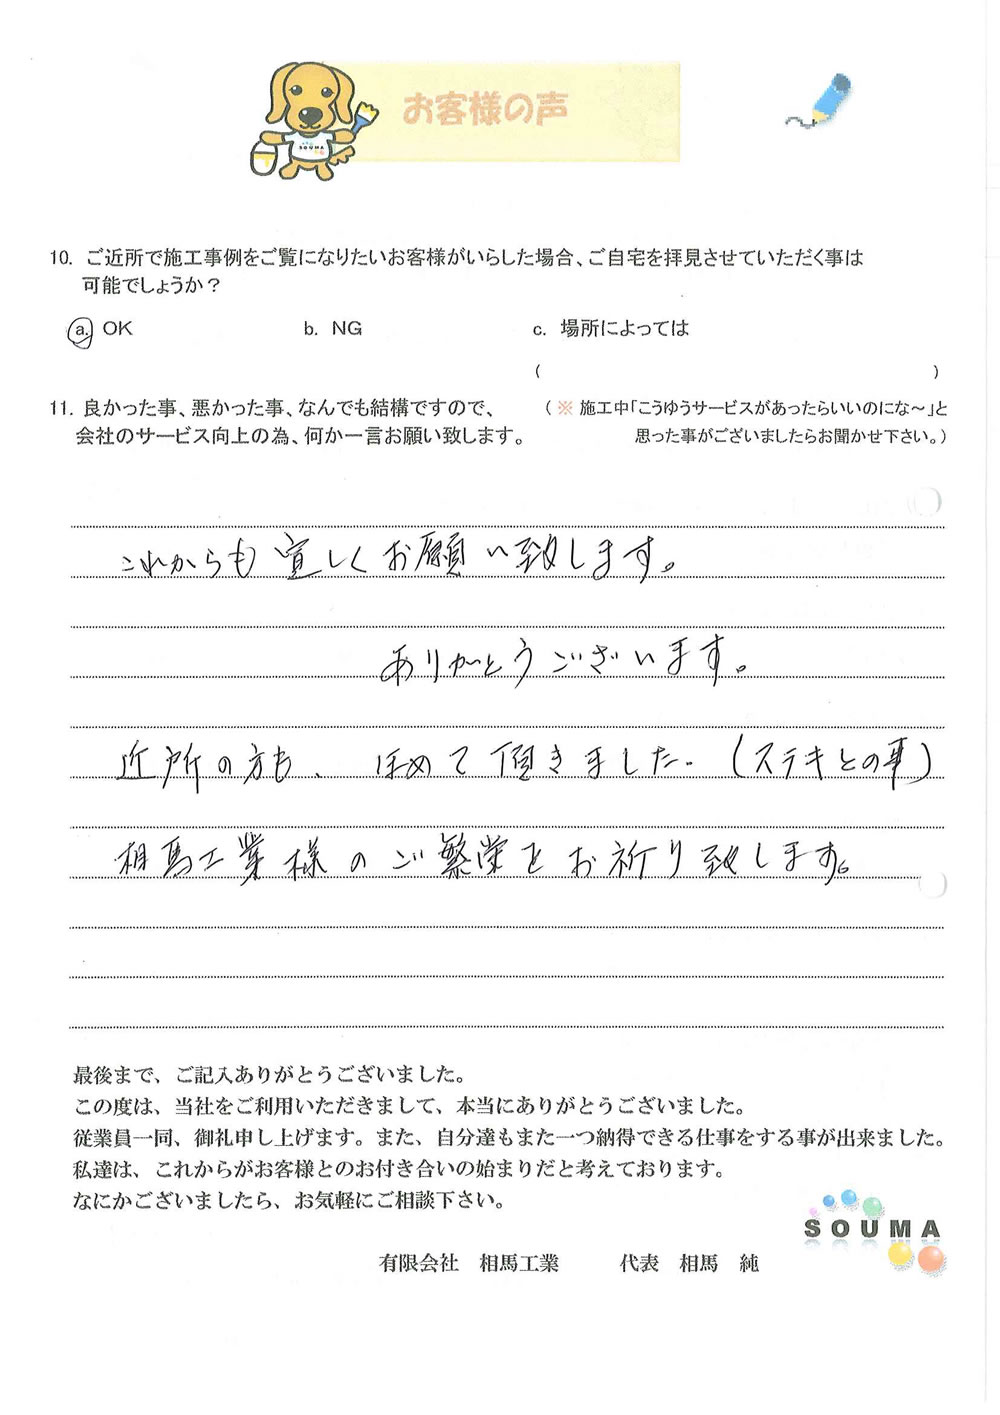 お客様の声
SOUMA
10. ご近所で施工事例をご覧になりたいお客様がいらした場合、ご自宅を拝見させていただく事は
可能でしょうか？
a. OK b. NG c. 場所によっては
( )
11. 良かった事、悪かった事、なんでも結構ですので、 （ ※ 施工中「こうゆうサービスがあったらいいのにな～」と
会社のサービス向上の為、何か一言お願い致します。 思った事がございましたらお聞かせ下さい。）
これからも宜しくお願い致します。
ありがとうございます。
近所の方も、ほめて頂きました。（ステキとの事）
相馬工業様のご繁栄をお祈り致します。
最後まで、ご記入ありがとうございました。
この度は、当社をご利用いただきまして、本当にありがとうございました。
従業員一同、御礼申し上げます。また、自分達もまた一つ納得できる仕事をする事が出来ました。
私達は、これからがお客様とのお付き合いの始まりだと考えております。
なにかございましたら、お気軽にご相談下さい。
SOUMA
有限会社 相馬工業 代表 相馬 純